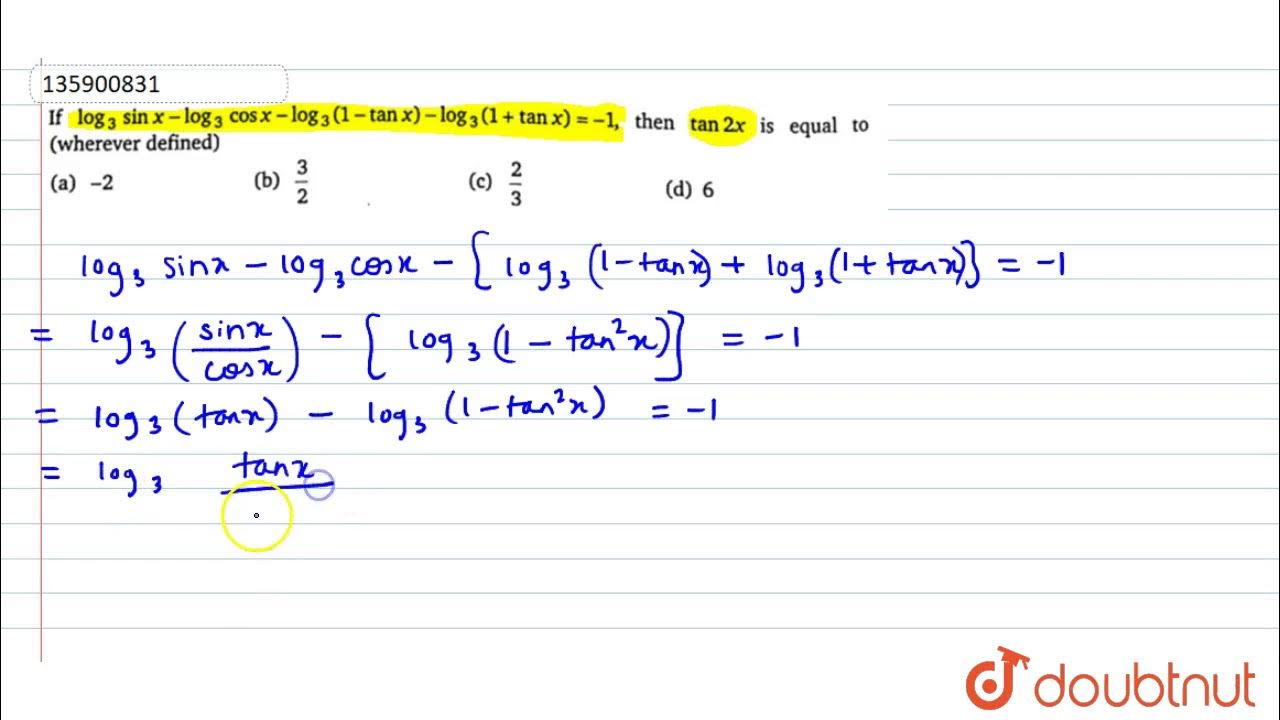 135900831
If log₃ sin x – log₃ cos x – log₃ (1 – tan x) – log₃ (1 + tan x) = –1, then tan 2x is equal to
(wherever defined)
(a) –2 (b) 3/2 (c) 2/3 (d) 6
log₃ sinx – log₃ cosx – { log₃ (1 – tanx) + log₃ (1 + tanx) } = –1
= log₃ (sinx/cosx) – [ log₃ (1 – tan²x) ] = –1
= log₃ (tanx) – log₃ (1 – tan²x) = –1
= log₃ tanx
doubtnut